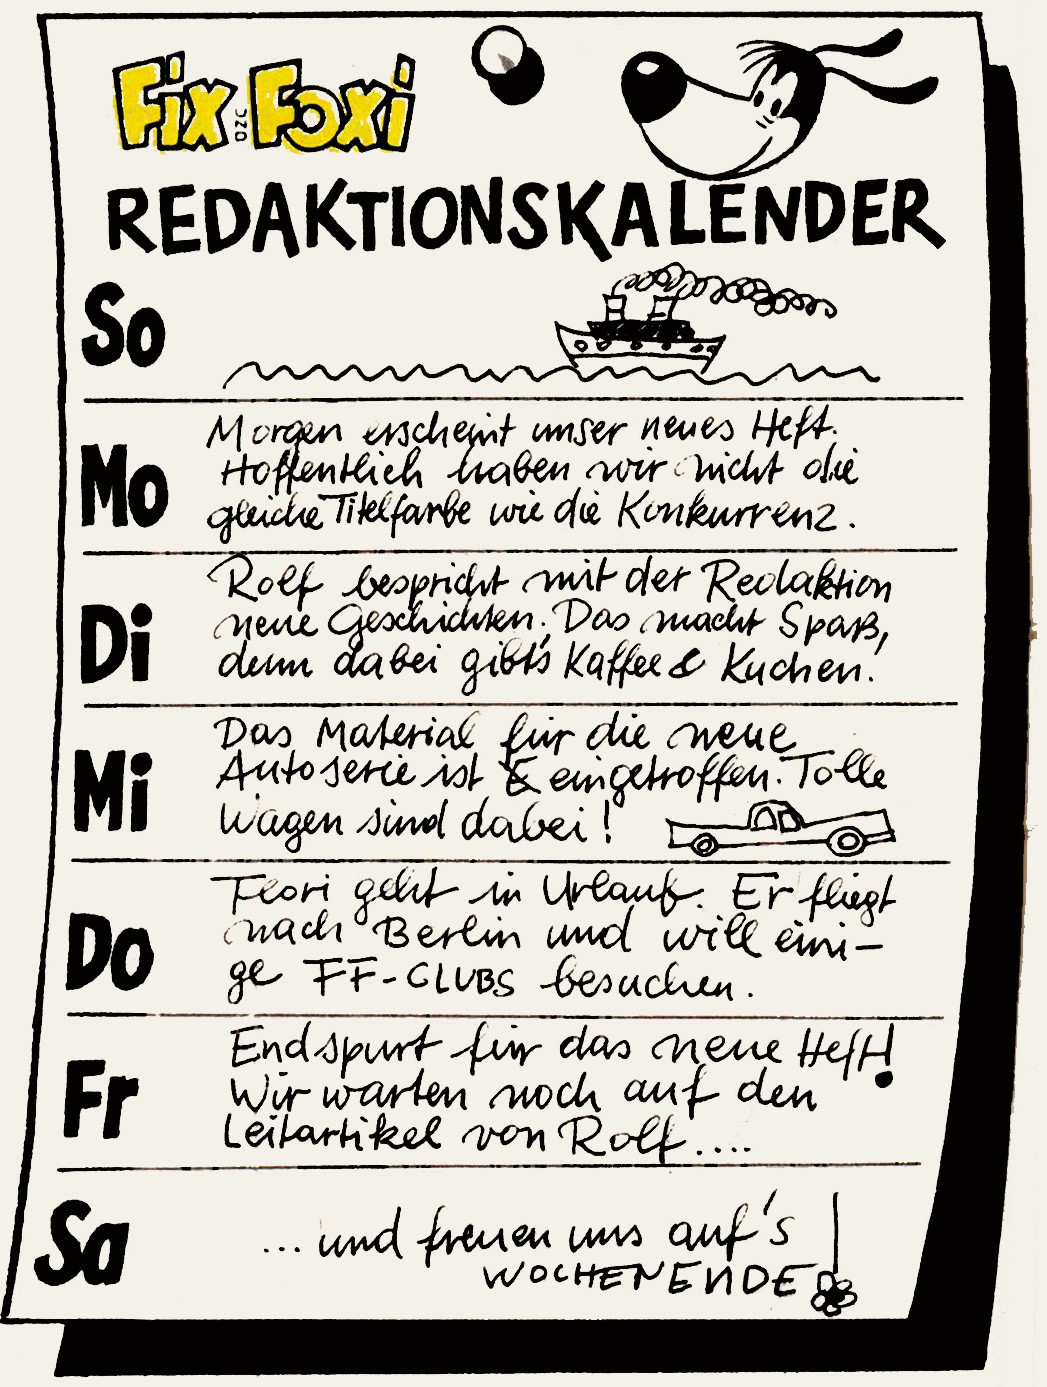 Fix und Foxi
REDAKTIONSKALENDER
So
Mo
Morgen erscheint unser neues Heft.
Hoffentlich haben wir nicht die
gleiche Titelfarbe wie die Konkurrenz.
Di
Rolf bespricht mit der Redaktion
neue Geschichten. Das macht Spaß,
denn dabei gibt's Kaffee & Kuchen.
Mi
Das Material für die neue
Autoserie ist eingetroffen. Tolle
Wagen sind dabei!
Do
Flori geht in Urlaub. Er fliegt
nach Berlin und will eini-
ge FF-CLUBS besuchen.
Fr
Endspurt für das neue Heft!
Wir warten noch auf den
Leitartikel von Rolf....
Sa
... und freuen uns auf's
WOCHENENDE!